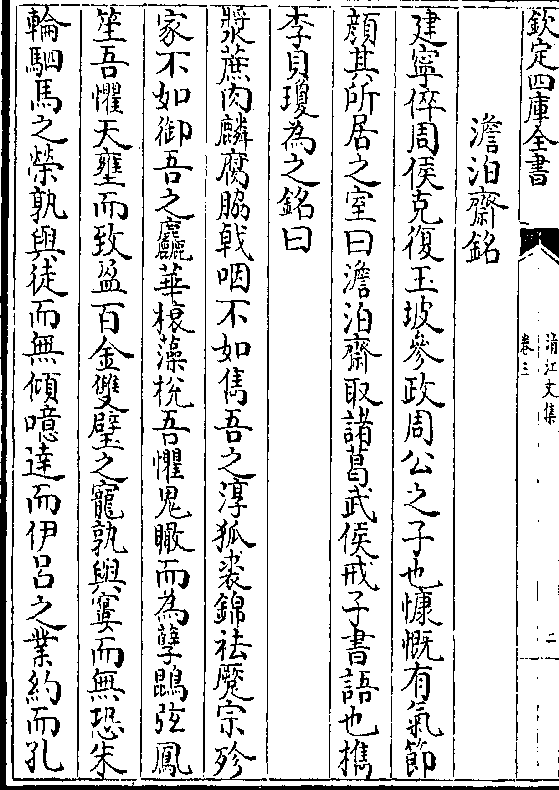 欽定四庫全書
清江文集
卷三
二
澹泊齋銘
建寧倅周侯克復玉坡參政周公之子也慷慨有氣節
顔其所居之室曰澹泊齋取諸葛武侯戒子書語也檇
李貝瓊為之銘曰
漿蔗肉麟腐脇戟咽不如雋吾之淳狐裘錦袪魘宗殄
家不如御吾之麤華榱藻梲吾懼鬼瞰而為孽鵾弦鳳
笙吾懼天壅而致盈百金雙璧之寵孰與窶而無恐朱
輪駟馬之榮孰與徒而無傾噫達而伊吕之業約而孔